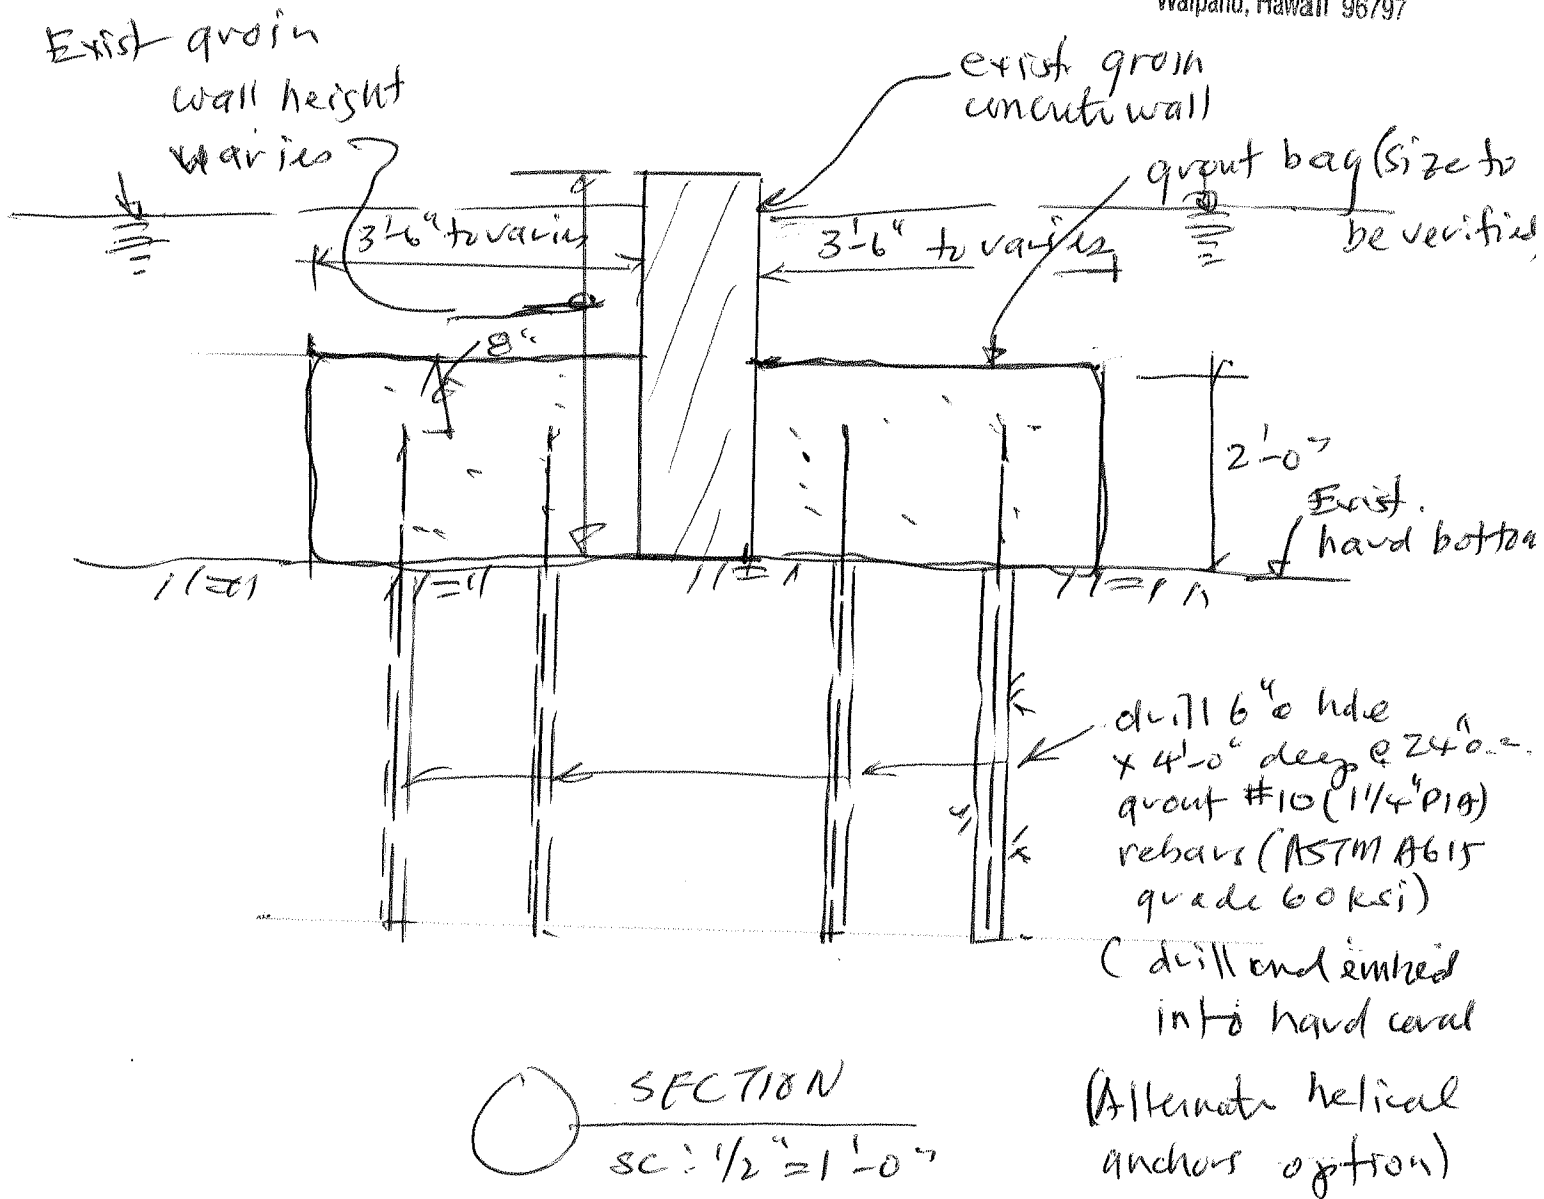 Waipahu, Hawaii 96797
Exist groin
wall height
varies
exist groin
concrete wall
grout bag (size to
be verified
3'-6" to varies
3'-6" to varies
8"
2'-0"
Exist.
hard bottom
drill 6"ø hole
x 4'-0" deep @ 24" o.c.
grout #10 (1 1/4" DIA)
rebars (ASTM A615
grade 60 ksi)
(drill and embed
into hard coral
(Alternate helical
anchors option)
SECTION
SC: 1/2" = 1'-0"